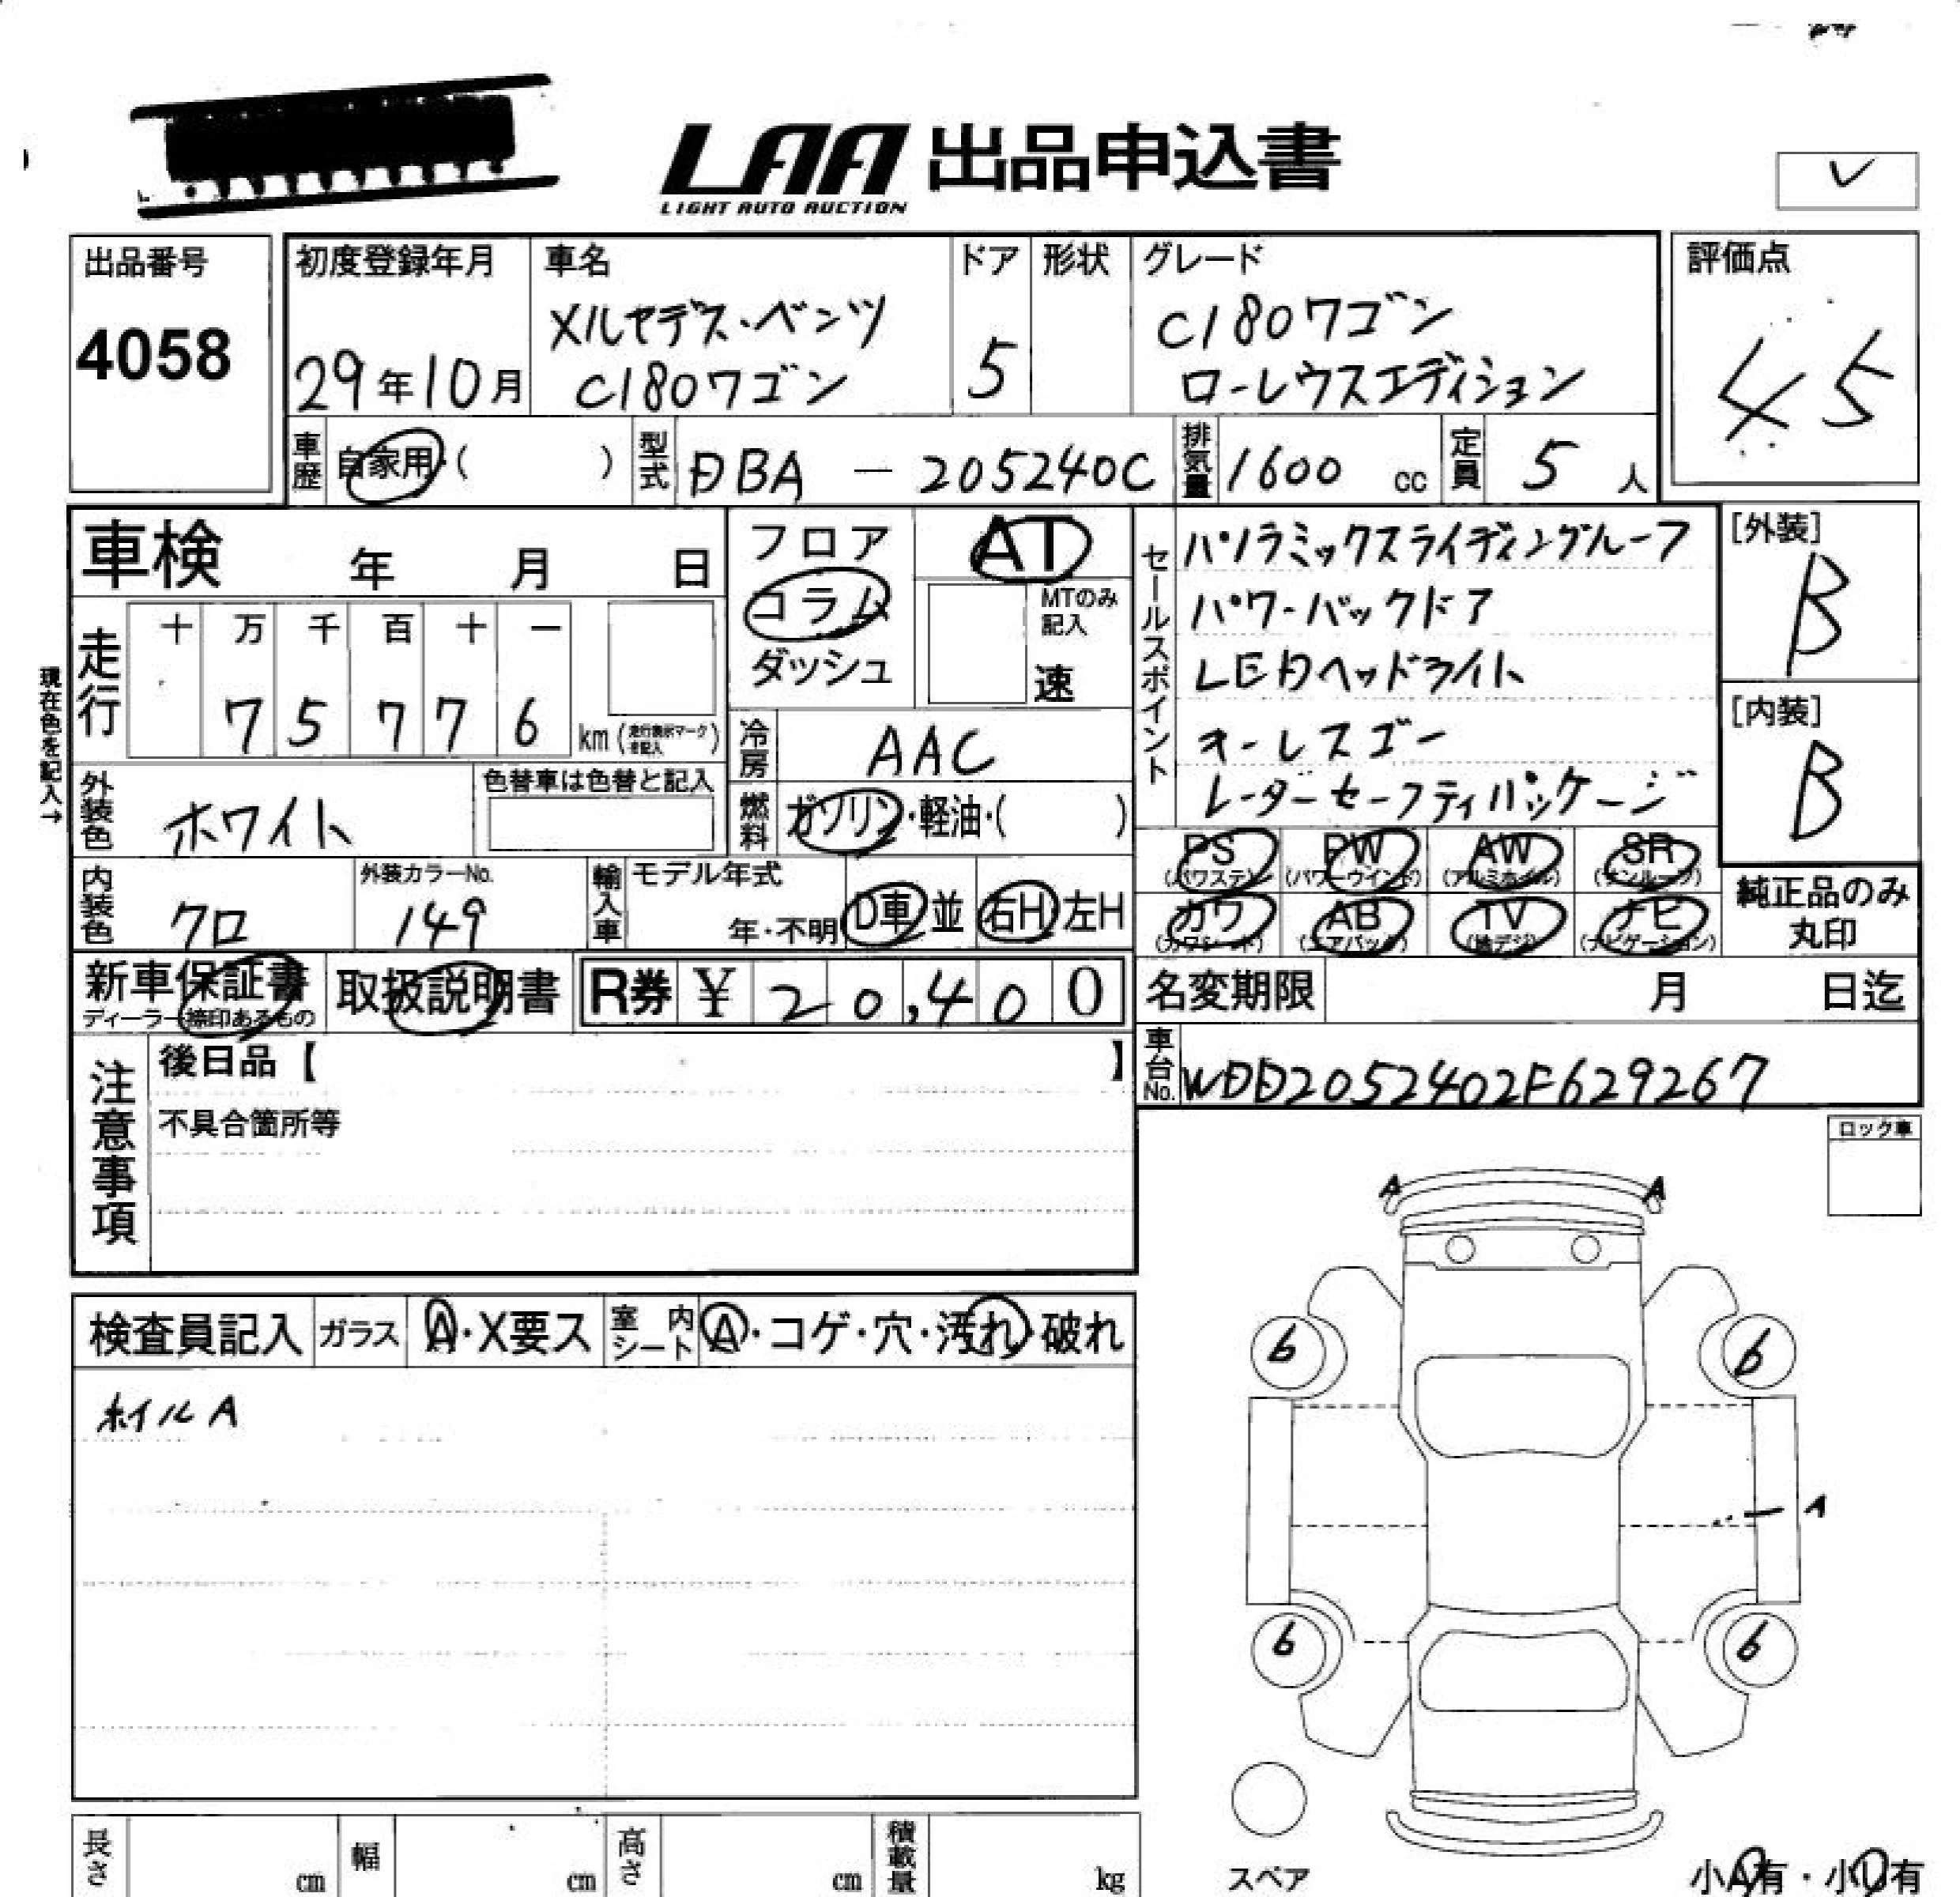 LAA 出品申込書
LIGHT AUTO AUCTION
出品番号
4058
初度登録年月
29年10月
車名
メルセデス・ベンツ
C180ワゴン
ドア
5
形状
グレード
C180ワゴン
ローレウスエディション
評価点
4.5
車歴
自家用・( )
型式
DBA - 205240C
排気量
1600 cc
定員
5 人
車検 年 月 日
フロア
コラム
ダッシュ
AT
MTのみ記入
速
セールスポイント
パノラミックスライディングルーフ
パワーバックドア
LEDヘッドライト
オーレスゴー
レーダーセーフティパッケージ
[外装]
B
[内装]
B
現在色を記入→
走行
十 万 千 百 十 一
7 5 7 7 6 km
冷房
AAC
外装色
ホワイト
色替車は色替と記入
燃料
ガソリン・軽油・( )
内装色
クロ
外装カラーNo.
149
輸入車
モデル年式
年・不明
D車 並 右H 左H
PS (パワステ) PW (パワーウインド) AW (アルミホイル) SR (サンルーフ)
カワ (カワシート) AB (エアバック) TV (地デジ) ナビ (ナビゲーション)
純正品のみ
丸印
新車保証書
ディーラー捺印あるもの
取扱説明書
R券 ¥ 20,400
名変期限 月 日迄
車台No.
WDD2052402F629267
注意事項
後日品【 】
不具合箇所等
ロック車
検査員記入 ガラス A・X要ス 室内シート A・コゲ・穴・汚れ・破れ
ホイルA
A A
6 6
A
6 6
スペア
小A有・小U有
長さ cm 幅 cm 高さ cm 積載量 kg